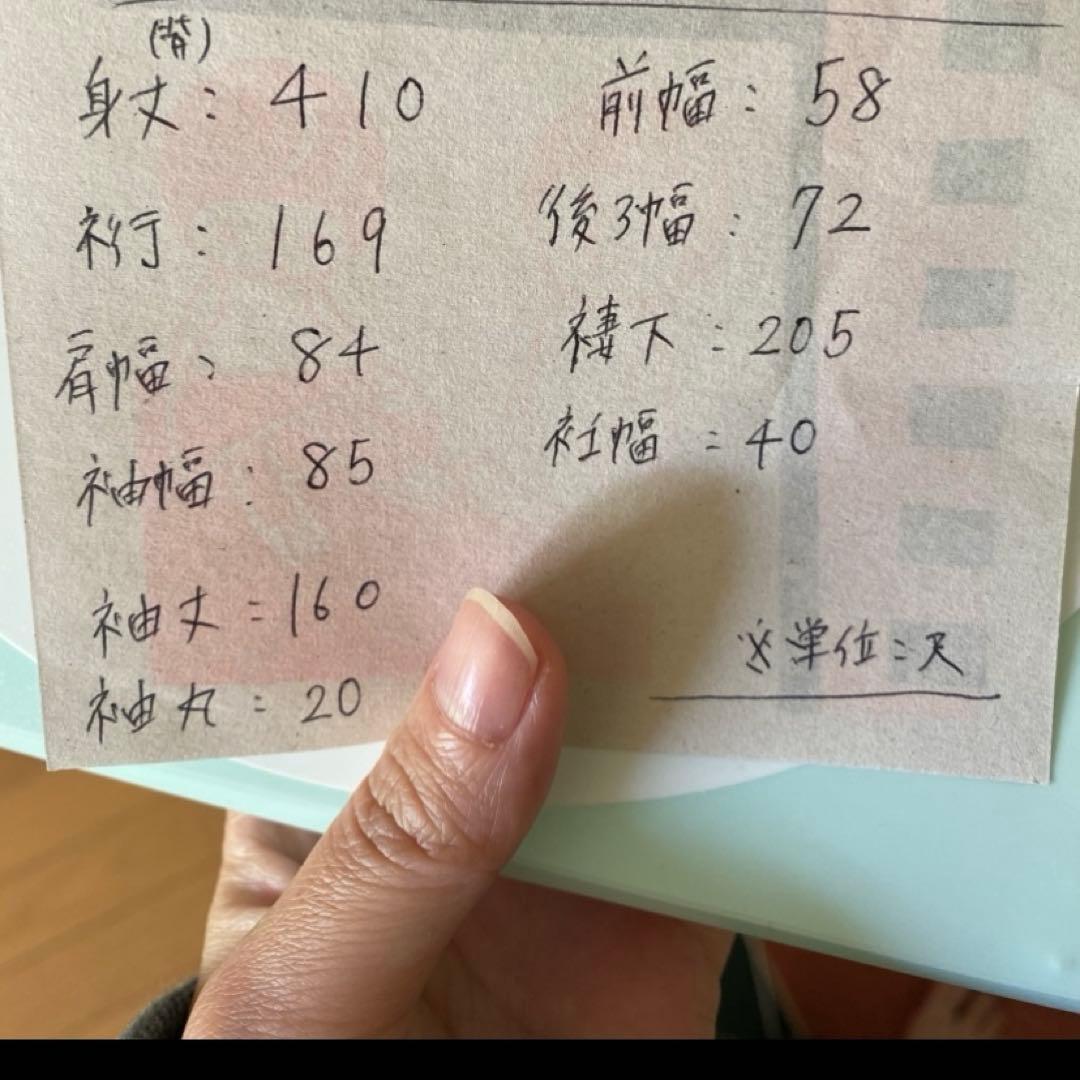 (背)
身丈：410
裄：169
肩幅：84
袖幅：85
袖丈：160
袖丸：20
前幅：58
後ろ幅：72
褄下：205
衽幅：40
※単位：尺